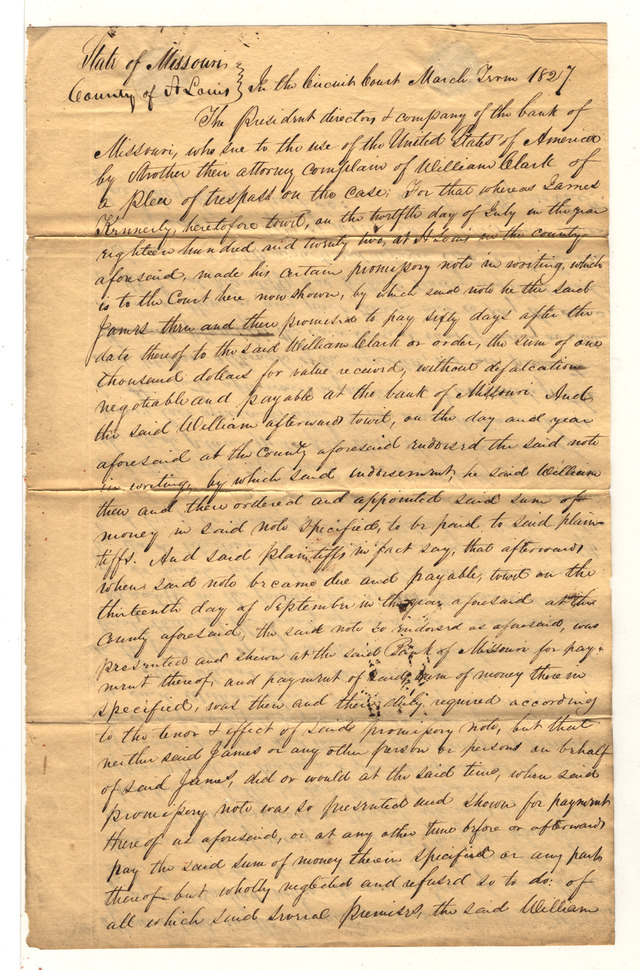 State of Missouri
County of St Louis } In the Circuit Court March Term 1827.
The President directors & company of the bank of
Missouri, who sue to the use of the United States of America
by Strother their attorney complain of William Clark of
a plea of trespass on the case; For that whereas James
Kennerly, heretofore towit, on the twelfth day of July in the year
eighteen hundred and twenty two, at St Louis in the county
aforesaid, made his certain promissory note in writing, which
is to the Court here now shown, by which said note he the said
James then and there promised to pay sixty days after the
date thereof to the said William Clark or order, the sum of one
thousand dollars for value received, without defalcation
negotiable and payable at the bank of Missouri. And
the said William afterwards towit, on the day and year
aforesaid at the County aforesaid endorsed the said note
in writing, by which said indorsement, he said William
then and there ordered and appointed said sum of
money in said note specified, to be paid to said plain-
tiffs. And said plaintiffs in fact say, that afterwards
when said note became due and payable, towit on the
thirteenth day of September in the year aforesaid at the
County aforesaid, the said note so endorsed as aforesaid, was
presented and shewn at the said Bank of Missouri for pay-
ment thereof, and payment of said sum of money therein
specified, was then and there duly required according
to the tenor & effect of said promissory note, but that
neither said James or any other person or persons on behalf
of said James, did or would at the said time, when said
promissory note was so presented and shown for payment
thereof as aforesaid, or at any other time before or afterwards
pay the said sum of money therein specified or any part
thereof but wholly neglected and refused so to do: of
all which said several premises, the said William